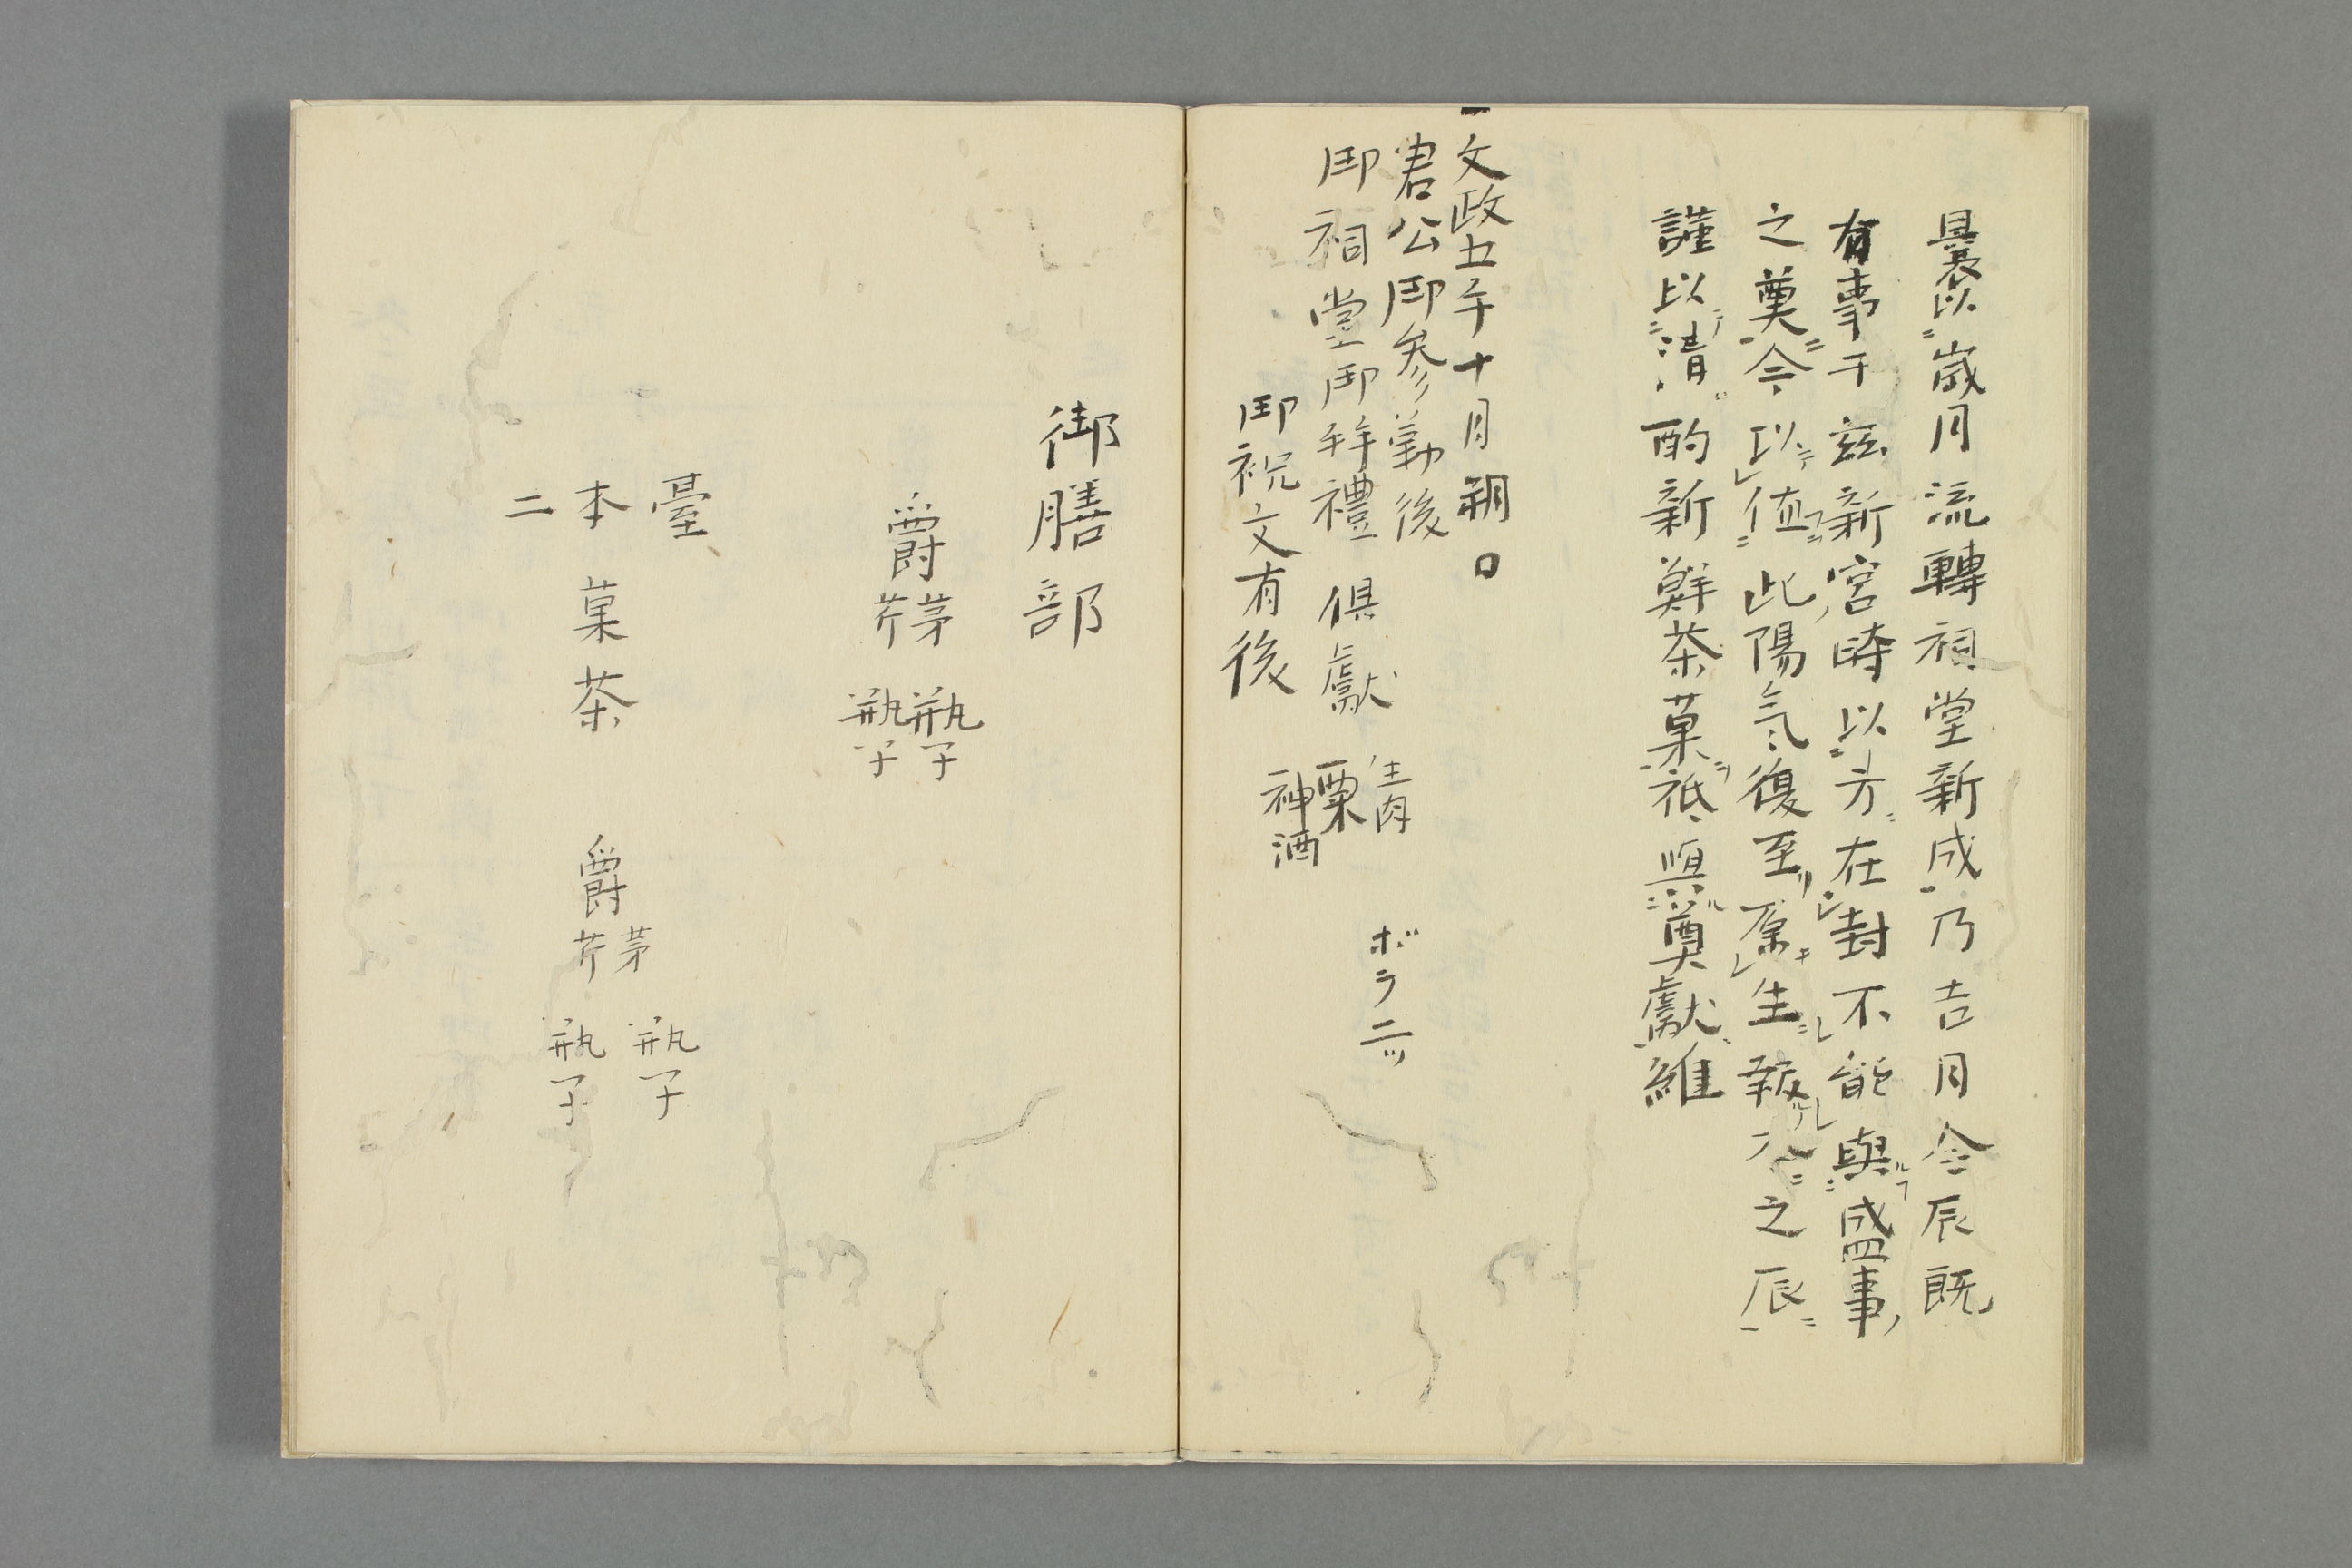 曩以歳月流轉祠堂新成乃吉月令辰既
有事于茲新宮時以方在封不能與盛事
之奠今以値此陽氣復至原生報之辰
謹以清酌新鮮茶菓祗奠獻維
一文政五午十月朔日
君公御参勤後
御祠堂御拜禮 俱獻 生肉 ボラ二ッ
栗
神酒
御祝文有後
御膳部
爵 茅 瓶子
芥 瓶子
臺
本 菓 茶 爵 茅 瓶子
芥 瓶子
二